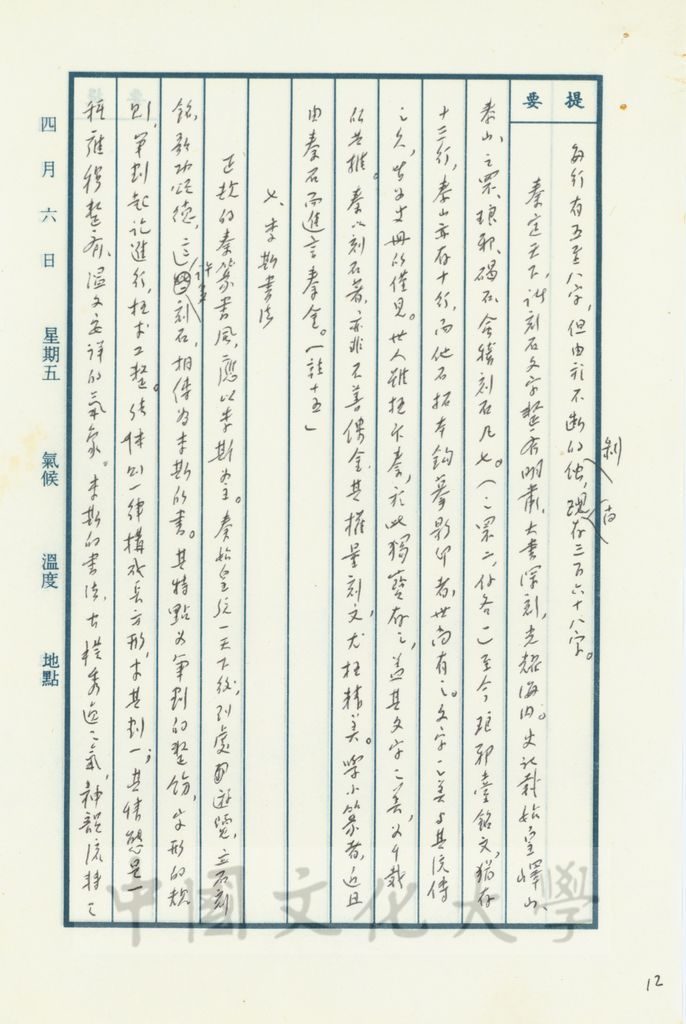 提要
每行有五至八字，但由於不斷的剝蝕，現存三百六十八字。
秦定天下，諸刻石文字整齊明肅，大書深刻，光耀海內。史記載始皇嶧山、
泰山、之罘、琅邪、碣石、會稽刻石凡七。（之罘二，餘各一）至今琅邪臺銘文，猶存
十三行，泰山亦存十行，而他石拓本鈎摹影印者，世尚有之。文字之美與其流傳
之久，皆為史冊所僅見。世人雖抵斥秦，於此獨寶存之，蓋其文字之美，為千載
所共推。秦以刻石著，亦非不善保金，其權量刻文尤極精美。學小篆者，近且
由秦石而進言秦金。（註十五）
七、李斯書法
正統的秦篆書風，應以李斯為主。秦始皇統一天下後，到處遊覽，立石刻
銘，歌功頌德，這許多刻石，相傳為李斯所書。其特點為筆劃的整飭，字形的規
則，筆劃起訖進行，極求工整。結体則一律構成長方形，求其劃一，其情態是一
種雍穆整齊、溫文安詳的氣象。李斯的書法，古樸秀逸之氣，神韻流轉之
四月六日 星期五 氣候 溫度 地點
中國文化大學
12